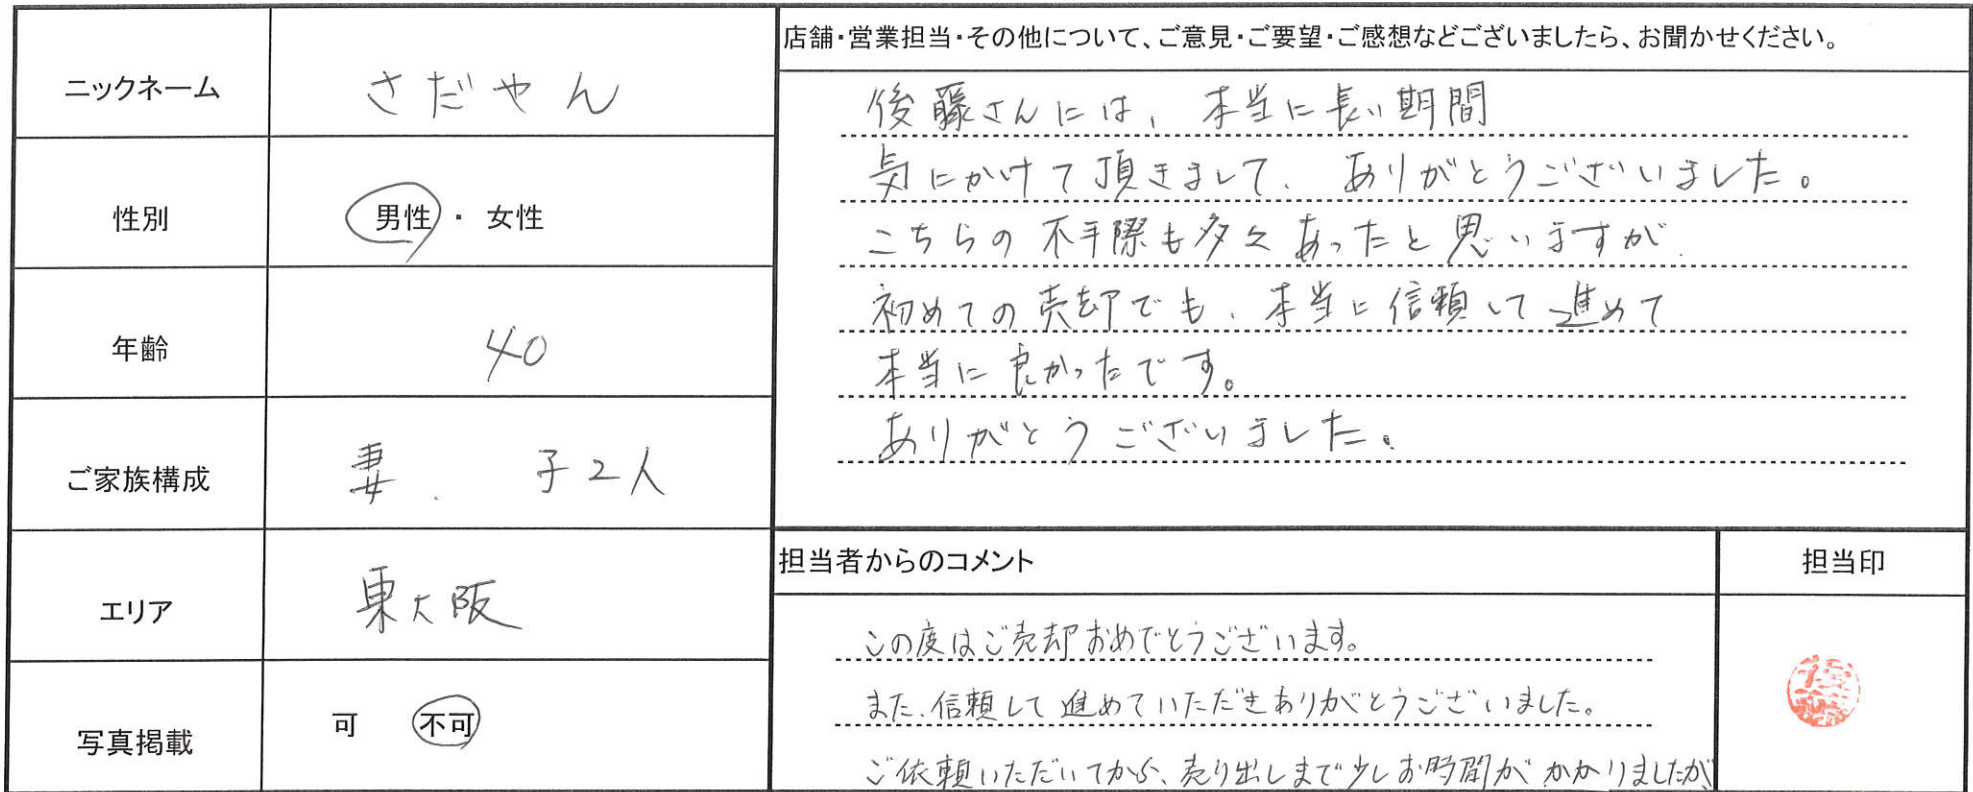 ニックネーム
さだやん
性別
男性・女性
年齢
40
ご家族構成
妻、 子2人
エリア
東大阪
写真掲載
可 不可
店舗・営業担当・その他について、ご意見・ご要望・ご感想などございましたら、お聞かせください。
後藤さんには、本当に長い期間
気にかけて頂きまして、ありがとうございました。
こちらの不手際も多々あったと思いますが、
初めての売却でも、本当に信頼して進めて
本当に良かったです。
ありがとうございました。
担当者からのコメント
この度はご売却おめでとうございます。
また、信頼して進めていただきありがとうございました。
ご依頼いただいてから、売り出しまで少しお時間がかかりましたが、
担当印